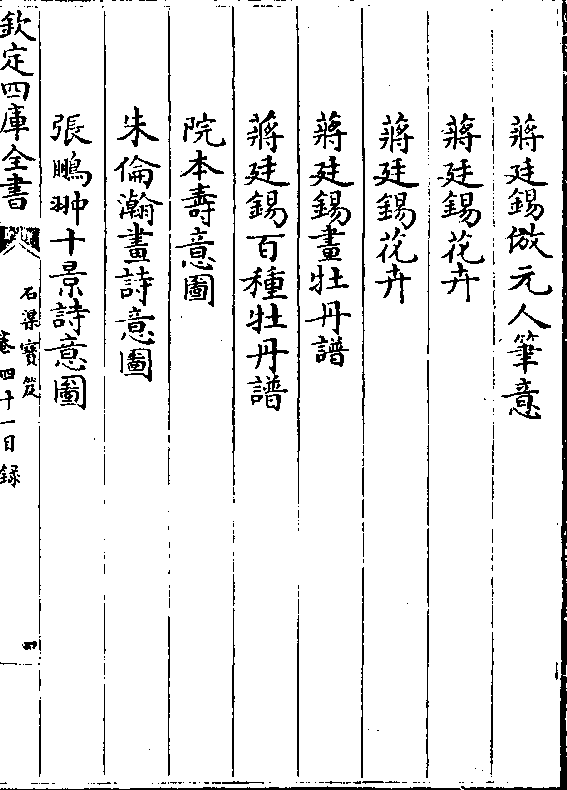 蔣廷錫倣元人筆意
蔣廷錫花卉
蔣廷錫花卉
蔣廷錫畫牡丹譜
蔣廷錫百種牡丹譜
院本壽意圖
朱倫瀚畫詩意圖
張鵬翀十景詩意圖
欽定四庫全書
石渠寶笈
卷四十一目録
四